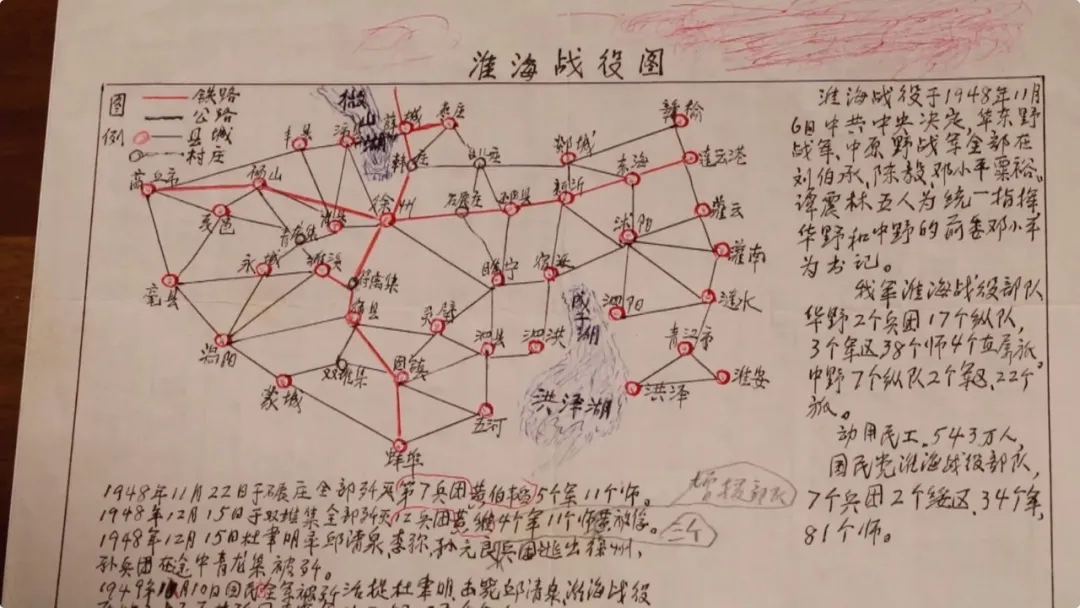 淮海战役图
图例
铁路
公路
县城
村庄
微山湖
丰县
薛城
枣庄
韩庄
郯城
赣榆
东海
连云港
商丘市
砀山
徐州
新沂
沭阳
灌云
灌南
夏邑
青龙集
永城
睢宁
宿迁
泗阳
涟水
亳县
灵壁
泗县
泗洪
成子湖
涡阳
双堆集
固镇
蒙城
五河
洪泽湖
洪泽
淮安
蚌埠
淮海战役于1948年11月
6日中共中央决定,华东野
战军,中原野战军全部在
刘伯承,陈毅,邓小平粟裕。
谭震林五人为统一指挥
华野和中野的前委邓小平
为书记。
我军淮海战役部队
华野2个兵团17个纵队,
3个军区38个师4个直属旅。
中野7个纵队2个军区,22个
旅。
动用民工,543万人,
国民党淮海战役部队,
7个兵团2个绥区,34个军,
81个师。
1948年11月22日于碾庄全部歼灭第7兵团黄伯韬5个军11个师。
增援部队
1948年12月15日于双堆集全部歼灭12兵团黄维4个军11个师
三个
1948年12月15日杜聿明率邱清泉,李弥,孙元良兵团逃出徐州,
孙兵团在途中青龙集被歼。
1949年1月10日国民全军被歼活捉杜聿明,击毙邱清泉,淮海战役